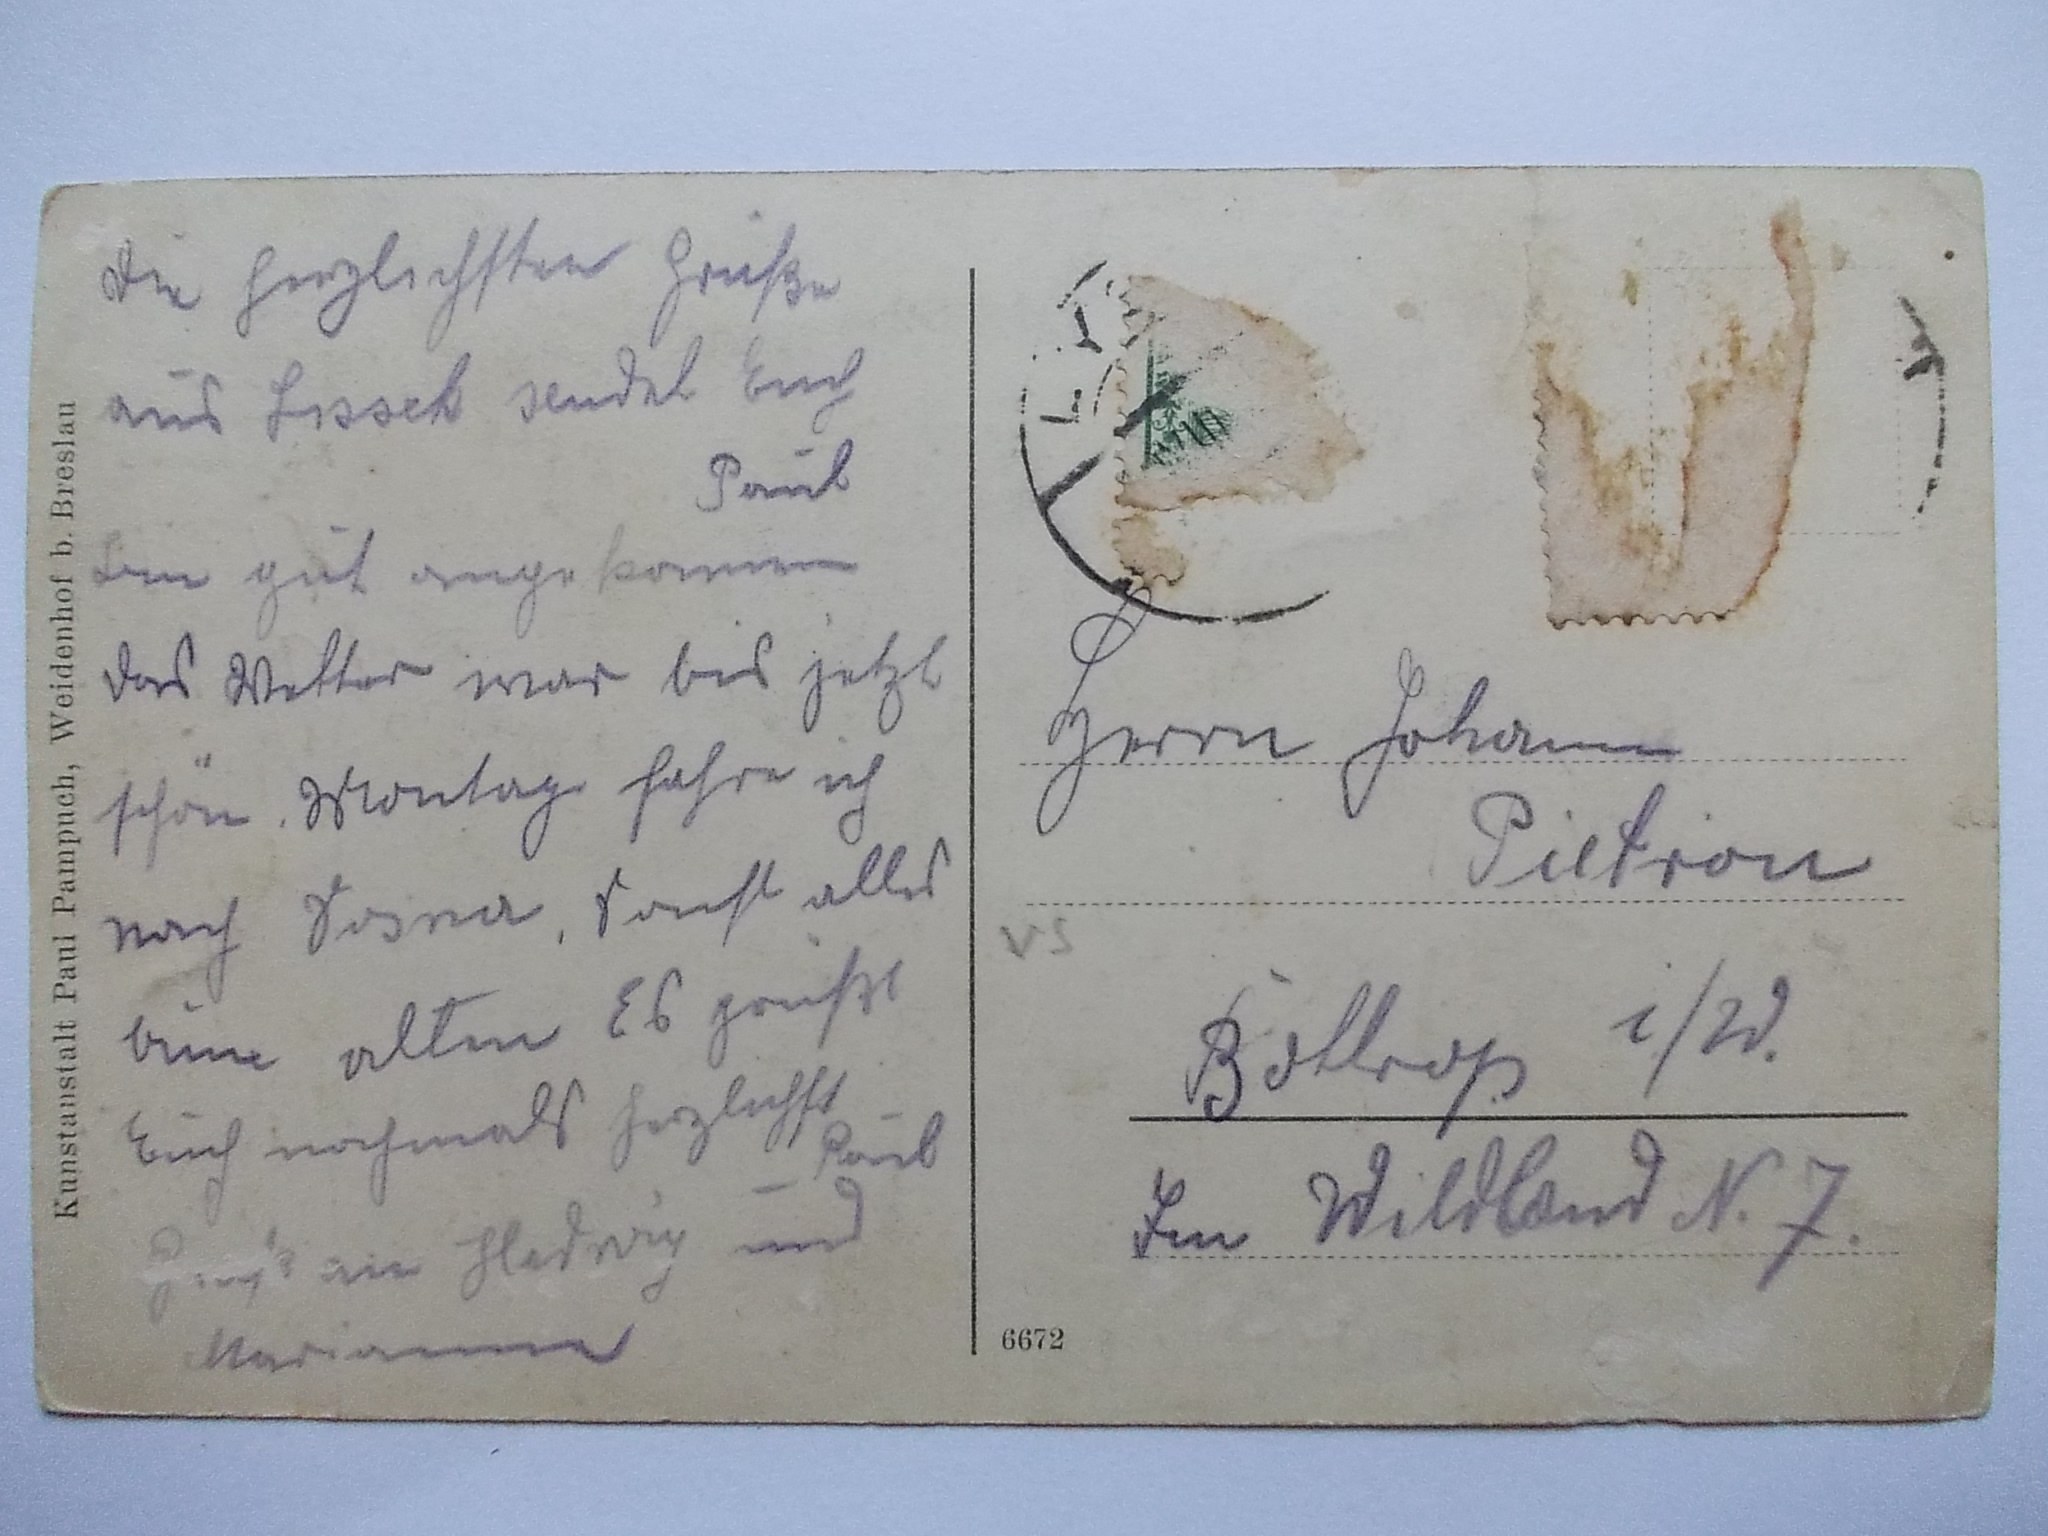 Die herzlichsten Grüße
aus Lissek sendet Euch
Paul
Bin gut angekommen
das Wetter war bis jetzt
schön. Montag fahre ich
nach Sosna, Sonst alles
beim alten Es grüßt
Euch nochmals herzlichst
Paul
Gruß an Hedwig und
Marianne
Kunstanstalt Paul Pampuch, Weidenhof b. Breslau
Herrn Johann
Pietron
Bottrop i/W.
Im Wildland N. 7.
6672